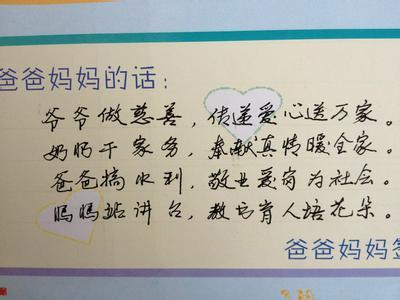 爸爸妈妈的话：
爷爷做慈善，传递爱心送万家。
奶奶干家务，奉献真情暖全家。
爸爸搞水利，敬业爱岗为社会。
妈妈站讲台，教书育人培花朵。
爸爸妈妈签